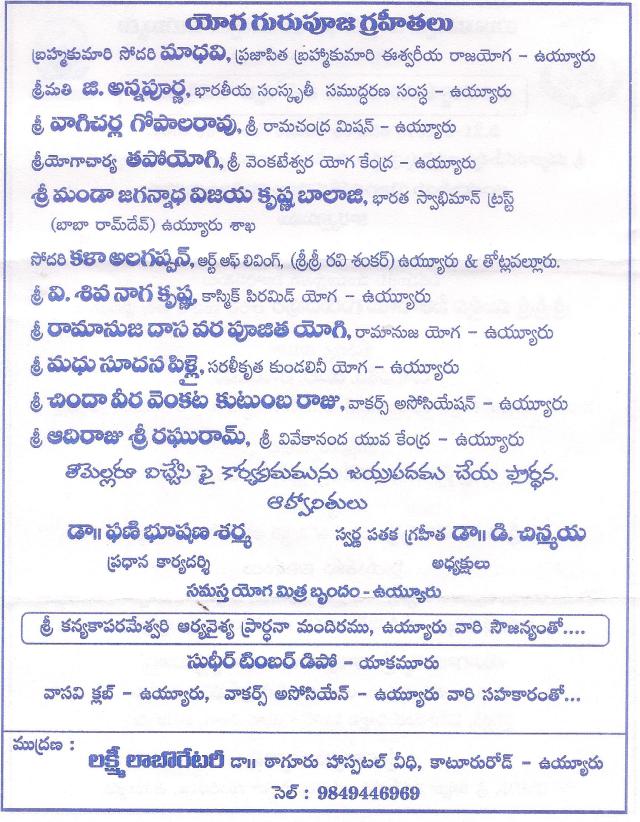 యోగ గురుపూజ గ్రహీతలు
బ్రహ్మకుమారి సోదరి మాధవి, ప్రజాపిత బ్రహ్మాకుమారి ఈశ్వరీయ రాజయోగ - ఉయ్యూరు
శ్రీమతి జి. అన్నపూర్ణ, భారతీయ సంస్కృతీ సముద్ధరణ సంస్ధ - ఉయ్యూరు
శ్రీ వాగిచర్ల గోపాలరావు, శ్రీ రామచంద్ర మిషన్ - ఉయ్యూరు
శ్రీయోగాచార్య తపోయోగి, శ్రీ వెంకటేశ్వర యోగ కేంద్ర - ఉయ్యూరు
శ్రీ మండా జగన్నాధ విజయ కృష్ణ బాలాజి, భారత స్వాభిమాన్ ట్రస్ట్
(బాబా రామ్‌దేవ్) ఉయ్యూరు శాఖ
సోదరి కళా అలగప్పన్, ఆర్ట్ ఆఫ్ లివింగ్, (శ్రీశ్రీ రవి శంకర్) ఉయ్యూరు & తోట్లవల్లూరు.
శ్రీ వి. శివ నాగ కృష్ణ, కాస్మిక్ పిరమిడ్ యోగ - ఉయ్యూరు
శ్రీ రామానుజ దాస వర పూజిత యోగి, రామానుజ యోగ - ఉయ్యూరు
శ్రీ మధు సూదన పిళ్లై, సరళీకృత కుండలినీ యోగ - ఉయ్యూరు
శ్రీ చిందా వీర వెంకట కుటుంబ రాజు, వాకర్స్ అసోసియేషన్ - ఉయ్యూరు
శ్రీ ఆదిరాజు శ్రీ రఘురామ్, శ్రీ వివేకానంద యువ కేంద్ర - ఉయ్యూరు
తామెల్లరూ విచ్చేసి పై కార్యక్రమమును జయప్రదము చేయ ప్రార్ధన.
ఆహ్వానితులు
డా॥ ఫణి భూషణ శర్మ స్వర్ణ పతక గ్రహీత డా॥ డి. చిన్మయ
ప్రధాన కార్యదర్శి అధ్యక్షులు
సమస్త యోగ మిత్ర బృందం - ఉయ్యూరు
శ్రీ కన్యకాపరమేశ్వరి ఆర్యవైశ్య ప్రార్ధనా మందిరము, ఉయ్యూరు వారి సౌజన్యంతో....
సుధీర్ టింబర్ డిపో - యాకమూరు
వాసవి క్లబ్ - ఉయ్యూరు, వాకర్స్ అసోసియేన్ - ఉయ్యూరు వారి సహకారంతో...
ముద్రణ :
లక్ష్మీ లాబొరేటరీ డా॥ ఠాగూరు హాస్పటల్ వీధి, కాటూరురోడ్ - ఉయ్యూరు
సెల్ : 9849446969